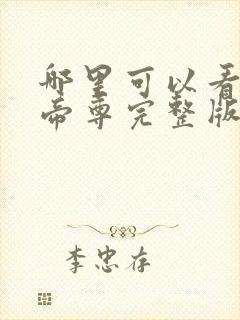 哪里可以看
帝尊完整版
李忠存